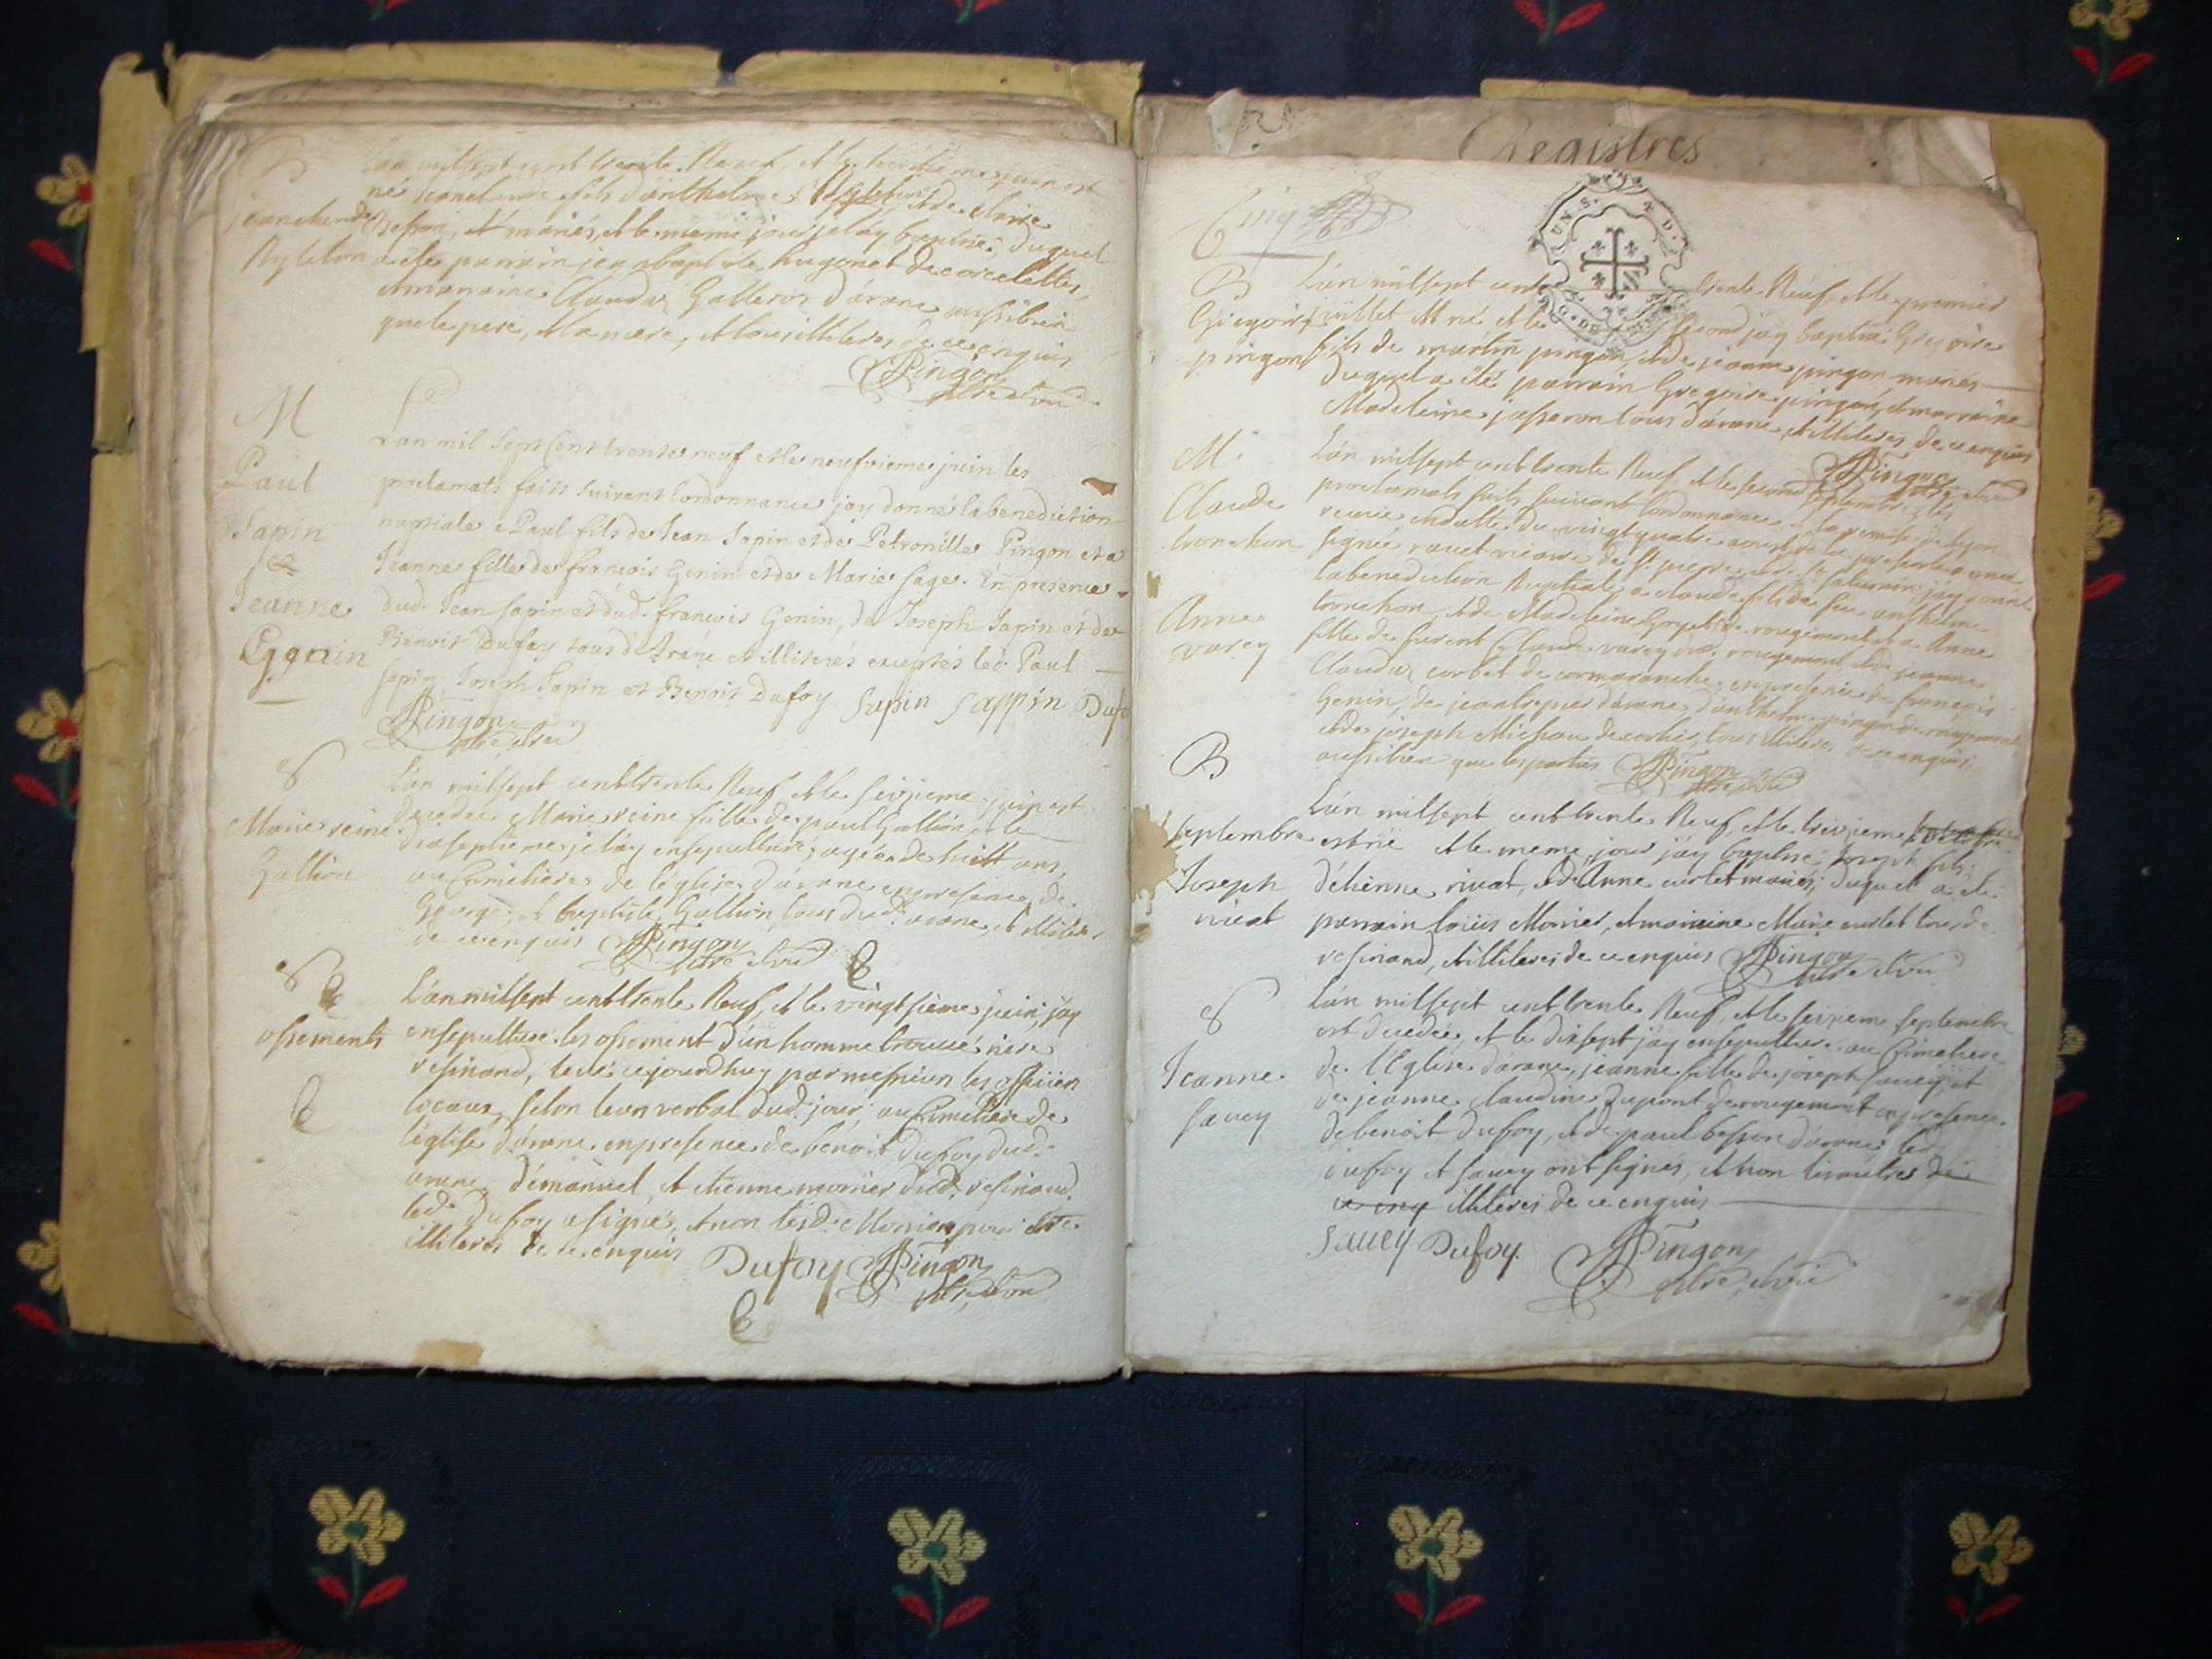 B
L'an mil sept cent trente Neuf, et le
né jeanclaude fils d'anthelme et de claire
jeanclaude
Besson, et mariés, et le meme jour je l'ay baptisé, duquel
a esté parrain jean baptiste hugonet de corcelettes,
et marraine Claudaz Galleros d'arane aussibien
que le pere, et la mere, et tous illiteres de ce enquis
Pingon
M
Paul
Sapin
&
Jeanne
Genin
Lan mil Sept Cent trente neuf et le neufvieme juin les
proclamats faits suivant l'ordonnance jay donné la benediction
nuptiale a Paul fils de Jean Sapin et de Petronille Pingon et a
Jeanne fille de francois Genin et de Marie Sage. En presence
dud. Jean Sapin et dud. francois Genin, de Joseph Sapin et de
Benoit Dufoy tous d'Arane et illiterés exceptés led. Paul
Sapin Joseph Sapin et Benoit Dufoy Sapin Sappin Dufo
Pingon
S
Marie reine
Gallion
L'an milsept centtrente Neuf et le seizieme juin est
decedée Marie reine fille de paul Gallion et le
dixseptieme je l'ay ensepulturé, agée de huitt ans,
au Cimetiere de l'église d'arane en presence de
George, et baptiste Gallion, tous dud. arane, et illiteres
de ce enquis Pingon
S
ossements
L'an milsept centtrente Neuf, et le vingt sieme juin, jay
ensepulturé les ossement d'un homme trouvé riere
resinand, levé cejourdhuy par messieurs les officiers
locaux, selon leur verbal dud. jour, au Cimetiere de
l'église d'arane en presence de benoit dufoy dud.
arane, d'emanuel, et etienne morrier dud. resinand.
led. Dufoy a signé, et non lesd. Morrier pour être
illiteres de ce enquis Dufoy Pingon
Registres
Cinq
B
Gregoire
pingon
L'an milsept cent trente Neuf, et le premier
juillet est né et le second jay baptisé Gregoire
fils de martin pingon, et de jeanne pingon mariés
Duquel a été parrain Gregoire pingon, et marraine
Madeleine josseron tous d'arane, et illiteres de ce enquis
Pingon
M.
Claude
tronchon
Anne
varey
L'an milsept centtrente Neuf, et le second septembre les
proclamats faits suivant l'ordonnance, la remise de lyon
receue en datte du vingtquatre aoust
signée
la benediction Nuptiale a claude fils de feu anthelme
tronchon, et de Madeleine de rougemont et a Anne
fille de furent Claude varey de rougemont et de jeanne
Claudaz corbet de cormaranche, en presence de françois
Genin, de jean d'arane, d'anthelme pingon de rougemont
et de joseph Michau de corlier, tous illiteres de ce enquis
aussibien que les parties Pingon
B
septembre
Joseph
rivat
L'an milsept centtrente Neuf, et le treizieme septembre
est né et le meme jour jay baptisé Joseph fils
d'etienne rivat, et d'Anne curlet mariés, duquel a été
parrain loüis Morrier, et marraine Marie curlet tous de
resinand, et illiteres de ce enquis Pingon
S
Jeanne
savey
L'an milsept centtrente Neuf, et le seizieme septembre
est decedée, et le dixsept jay ensepulturé au Cimetiere
de l'Eglise d'arane, jeanne fille de joseph savey, et
de jeanne claudine dupont de rougemont en presence
de benoit dufoy, et de paul besson d'arane led.
dufoy et savey ont signés, et non les autres de
ce enq illiteres de ce enquis
Savey Dufoy. Pingon